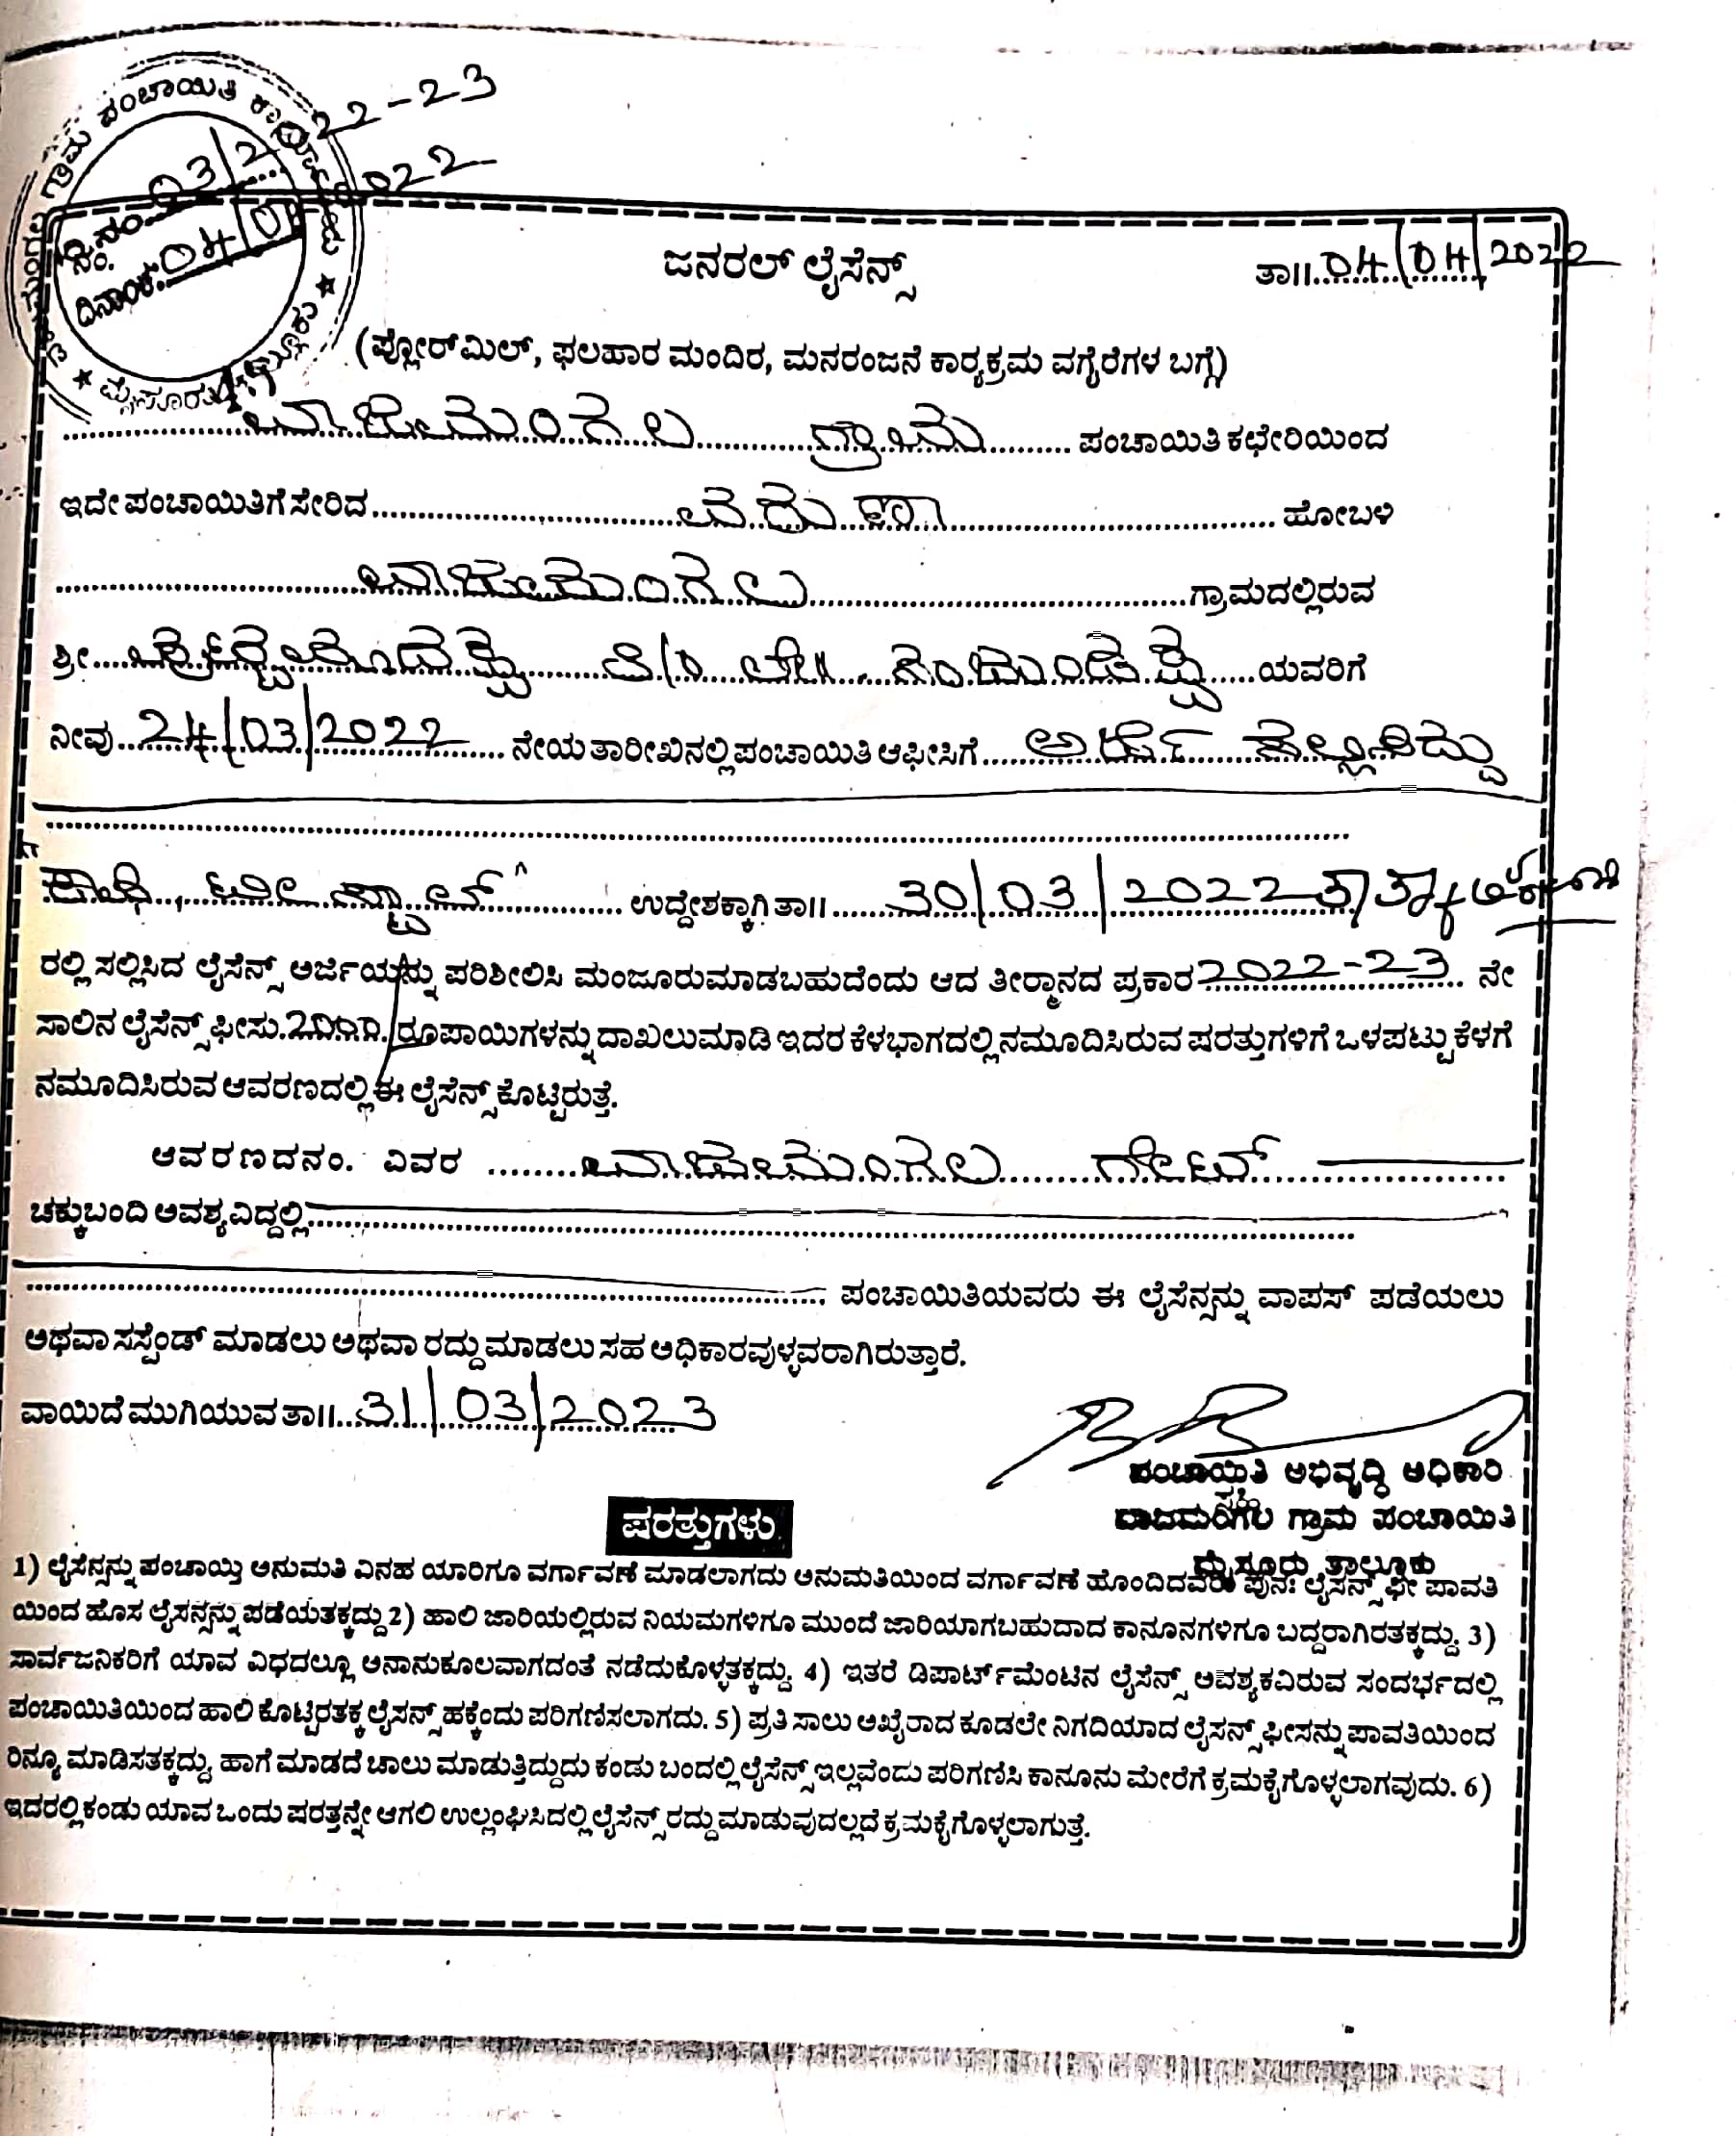 ಗ್ರಾಮ ಪಂಚಾಯಿತಿ
ನಂ. 03/2022-23
ದಿನಾಂಕ: 04/04/2022
ಜನರಲ್ ಲೈಸೆನ್ಸ್
ತಾ॥ 04/04/2022
(ಫ್ಲೋರ್‌ಮಿಲ್, ಫಲಹಾರ ಮಂದಿರ, ಮನರಂಜನೆ ಕಾರ್‍ಯಕ್ರಮ ವಗೈರೆಗಳ ಬಗ್ಗೆ)
ವಾಜಮಂಗಲ ಗ್ರಾಮ ಪಂಚಾಯಿತಿ ಕಛೇರಿಯಿಂದ
ಇದೇ ಪಂಚಾಯಿತಿಗೆ ಸೇರಿದ ವರುಣಾ ಹೋಬಳಿ
ವಾಜಮಂಗಲ ಗ್ರಾಮದಲ್ಲಿರುವ
ಶ್ರೀ ಯವರಿಗೆ
ನೀವು 24/03/2022 ನೇಯ ತಾರೀಖಿನಲ್ಲಿ ಪಂಚಾಯಿತಿ ಆಫೀಸಿಗೆ ಅರ್ಜಿ ಸಲ್ಲಿಸಿದ್ದು
ಕಾಫಿ, ಟೀ ಸ್ಟಾಲ್ ಉದ್ದೇಶಕ್ಕಾಗಿ ತಾ॥ 30/03/2022
ರಲ್ಲಿ ಸಲ್ಲಿಸಿದ ಲೈಸೆನ್ಸ್ ಅರ್ಜಿಯನ್ನು ಪರಿಶೀಲಿಸಿ ಮಂಜೂರುಮಾಡಬಹುದೆಂದು ಆದ ತೀರ್‍ಮಾನದ ಪ್ರಕಾರ 2022-23 ನೇ
ಸಾಲಿನ ಲೈಸೆನ್ಸ್ ಫೀಸು ರೂಪಾಯಿಗಳನ್ನು ದಾಖಲುಮಾಡಿ ಇದರ ಕೆಳಭಾಗದಲ್ಲಿ ನಮೂದಿಸಿರುವ ಷರತ್ತುಗಳಿಗೆ ಒಳಪಟ್ಟು ಕೆಳಗೆ
ನಮೂದಿಸಿರುವ ಆವರಣದಲ್ಲಿ ಈ ಲೈಸೆನ್ಸ್ ಕೊಟ್ಟಿರುತ್ತೆ.
ಆವರಣದ ನಂ. ವಿವರ ವಾಜಮಂಗಲ ಗೇಟ್
ಚಕ್ಕುಬಂದಿ ಅವಶ್ಯವಿದ್ದಲ್ಲಿ
ಪಂಚಾಯಿತಿಯವರು ಈ ಲೈಸೆನ್ಸನ್ನು ವಾಪಸ್ ಪಡೆಯಲು
ಅಥವಾ ಸಸ್ಪೆಂಡ್ ಮಾಡಲು ಅಥವಾ ರದ್ದು ಮಾಡಲು ಸಹ ಅಧಿಕಾರವುಳ್ಳವರಾಗಿರುತ್ತಾರೆ.
ವಾಯಿದೆ ಮುಗಿಯುವ ತಾ॥ 31/03/2023
ಪಂಚಾಯಿತಿ ಅಭಿವೃದ್ಧಿ ಅಧಿಕಾರಿ
ವಾಜಮಂಗಲ ಗ್ರಾಮ ಪಂಚಾಯಿತಿ
ಮೈಸೂರು ತಾಲ್ಲೂಕು
ಷರತ್ತುಗಳು
1) ಲೈಸೆನ್ಸನ್ನು ಪಂಚಾಯ್ತಿ ಅನುಮತಿ ವಿನಹ ಯಾರಿಗೂ ವರ್ಗಾವಣೆ ಮಾಡಲಾಗದು ಅನುಮತಿಯಿಂದ ವರ್ಗಾವಣೆ ಹೊಂದಿದವರು ಪುನಃ ಲೈಸೆನ್ಸ್ ಫೀ ಪಾವತಿ
ಯಿಂದ ಹೊಸ ಲೈಸನ್ಸನ್ನು ಪಡೆಯತಕ್ಕದ್ದು 2) ಹಾಲಿ ಜಾರಿಯಲ್ಲಿರುವ ನಿಯಮಗಳಿಗೂ ಮುಂದೆ ಜಾರಿಯಾಗಬಹುದಾದ ಕಾನೂನಗಳಿಗೂ ಬದ್ದರಾಗಿರತಕ್ಕದ್ದು. 3)
ಸಾರ್ವಜನಿಕರಿಗೆ ಯಾವ ವಿಧದಲ್ಲೂ ಅನಾನುಕೂಲವಾಗದಂತೆ ನಡೆದುಕೊಳ್ಳತಕ್ಕದ್ದು. 4) ಇತರೆ ಡಿಪಾರ್ಟ್‌ಮೆಂಟಿನ ಲೈಸೆನ್ಸ್ ಅವಶ್ಯಕವಿರುವ ಸಂದರ್ಭದಲ್ಲಿ
ಪಂಚಾಯಿತಿಯಿಂದ ಹಾಲಿ ಕೊಟ್ಟಿರತಕ್ಕ ಲೈಸನ್ಸ್ ಹಕ್ಕೆಂದು ಪರಿಗಣಿಸಲಾಗದು. 5) ಪ್ರತಿ ಸಾಲು ಅಖೈರಾದ ಕೂಡಲೇ ನಿಗದಿಯಾದ ಲೈಸನ್ಸ್ ಫೀಸನ್ನು ಪಾವತಿಯಿಂದ
ರಿನ್ಯೂ ಮಾಡಿಸತಕ್ಕದ್ದು. ಹಾಗೆ ಮಾಡದೆ ಚಾಲು ಮಾಡುತ್ತಿದ್ದುದು ಕಂಡು ಬಂದಲ್ಲಿ ಲೈಸೆನ್ಸ್ ಇಲ್ಲವೆಂದು ಪರಿಗಣಿಸಿ ಕಾನೂನು ಮೇರೆಗೆ ಕ್ರಮಕೈಗೊಳ್ಳಲಾಗವುದು. 6)
ಇದರಲ್ಲಿ ಕಂಡು ಯಾವ ಒಂದು ಷರತ್ತನ್ನೇ ಆಗಲಿ ಉಲ್ಲಂಘಿಸಿದಲ್ಲಿ ಲೈಸೆನ್ಸ್ ರದ್ದು ಮಾಡುವುದಲ್ಲದೆ ಕ್ರಮಕೈಗೊಳ್ಳಲಾಗುತ್ತೆ.